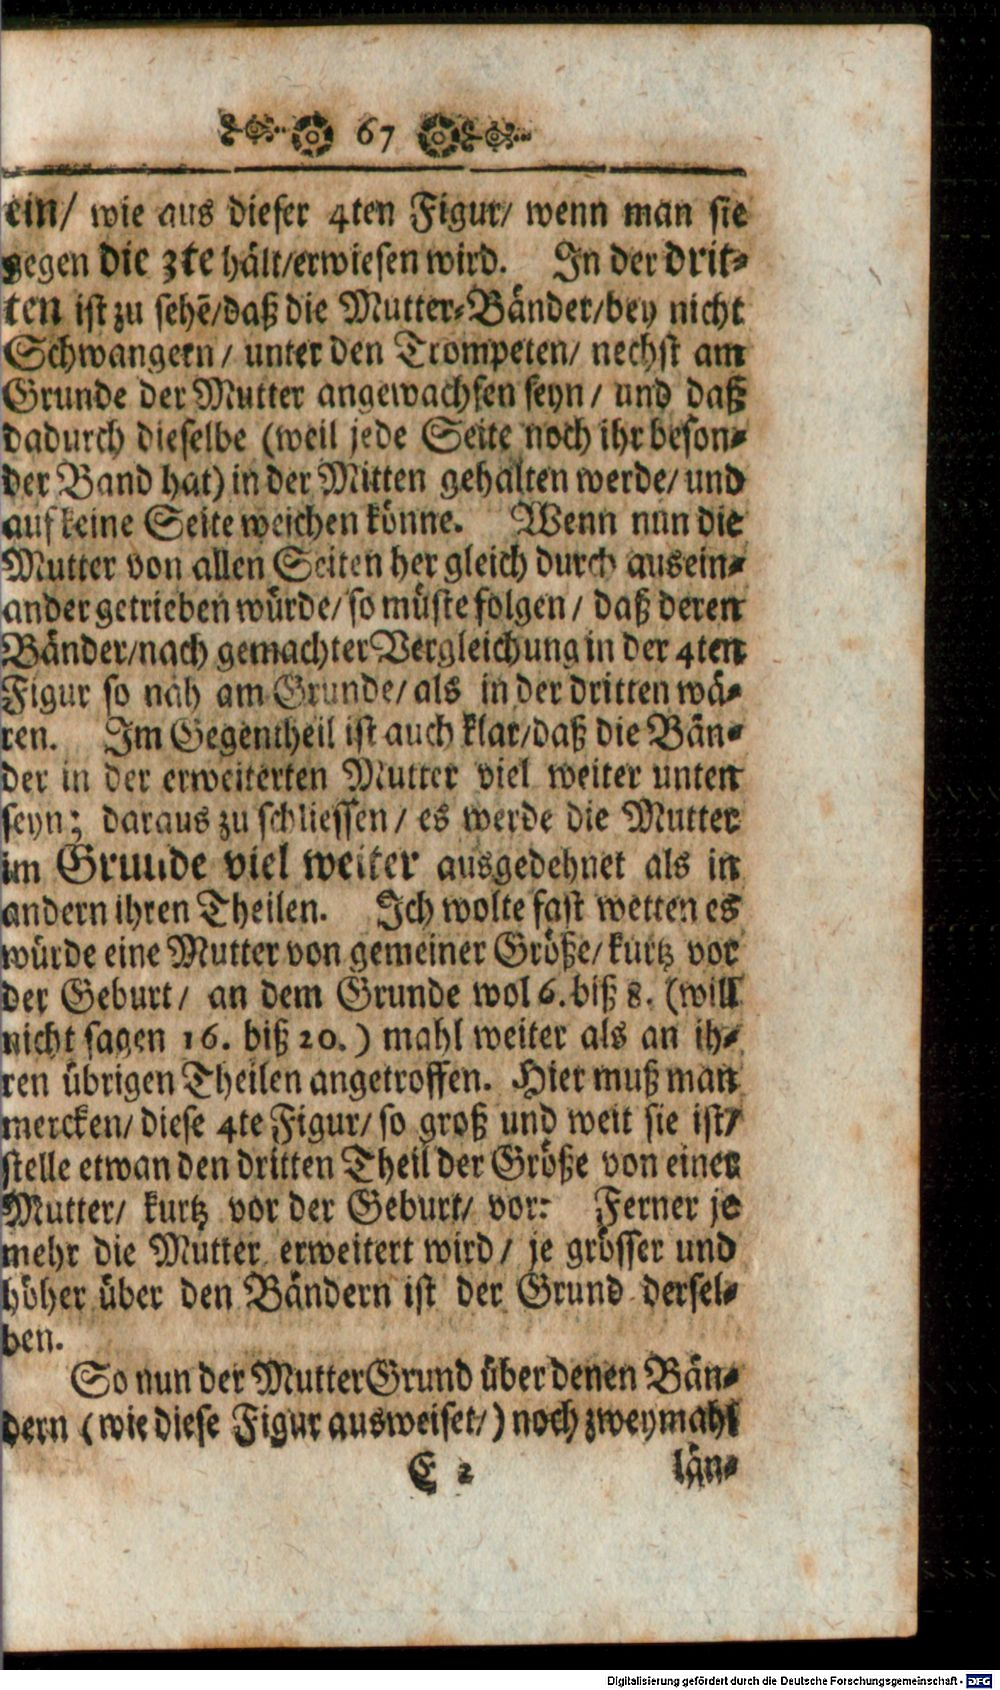 67
ein/ wie aus dieser 4ten Figur/ wenn man sie
gegen die 3te hält/erwiesen wird. In der drit-
ten ist zu sehē/daß die Mutter-Bänder/bey nicht
Schwangern/ unter den Trompeten/ nechst am
Grunde der Mutter angewachsen seyn/ und daß
dadurch dieselbe (weil jede Seite noch ihr beson-
der Band hat) in der Mitten gehalten werde/ und
auf keine Seite weichen könne. Wenn nun die
Mutter von allen Seiten her gleich durch ausein-
ander getrieben würde/ so müste folgen/ daß deren
Bänder/nach gemachter Vergleichung in der 4ten
Figur so nah am Grunde/ als in der dritten wä-
ren. Im Gegentheil ist auch klar/daß die Bän-
der in der erweiterten Mutter viel weiter unten
seyn; daraus zu schliessen/ es werde die Mutter
im Grunde viel weiter ausgedehnet als in
andern ihren Theilen. Ich wolte fast wetten es
würde eine Mutter von gemeiner Größe/ kurtz vor
der Geburt/ an dem Grunde wol 6. biß 8. (will
nicht sagen 16. biß 20.) mahl weiter als an ih-
ren übrigen Theilen angetroffen. Hier muß man
mercken/ diese 4te Figur/ so groß und weit sie ist/
stelle etwan den dritten Theil der Größe von einer
Mutter/ kurtz vor der Geburt/ vor: Ferner je
mehr die Mutter erweitert wird/ je grösser und
höher über den Bändern ist der Grund dersel-
ben.
So nun der Mutter Grund über denen Bän-
dern (wie diese Figur ausweiset/) noch zweymahl
E 2 län-
Digitalisierung gefördert durch die Deutsche Forschungsgemeinschaft - DFG